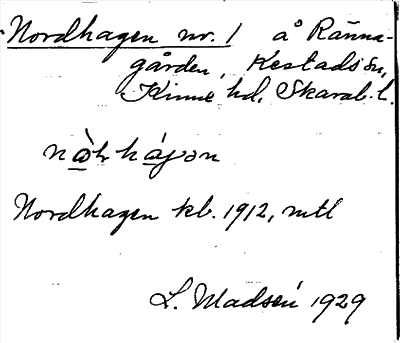 Nordhagen nr. 1 å Ränna-
gården, Kestads sn,
Kinne hd, Skarab. l.
Nordhagen kb. 1912, mtl
L. Madsén 1929